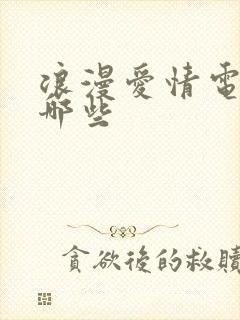 浪漫愛情電
哪些
貪欲後的救贖